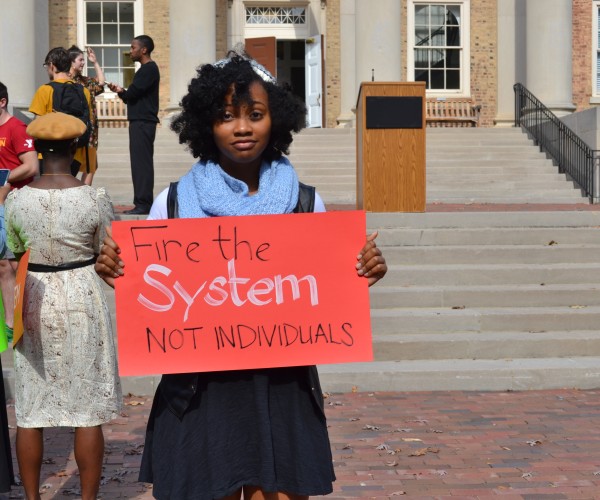 Fire the
System
NOT INDIVIDUALS